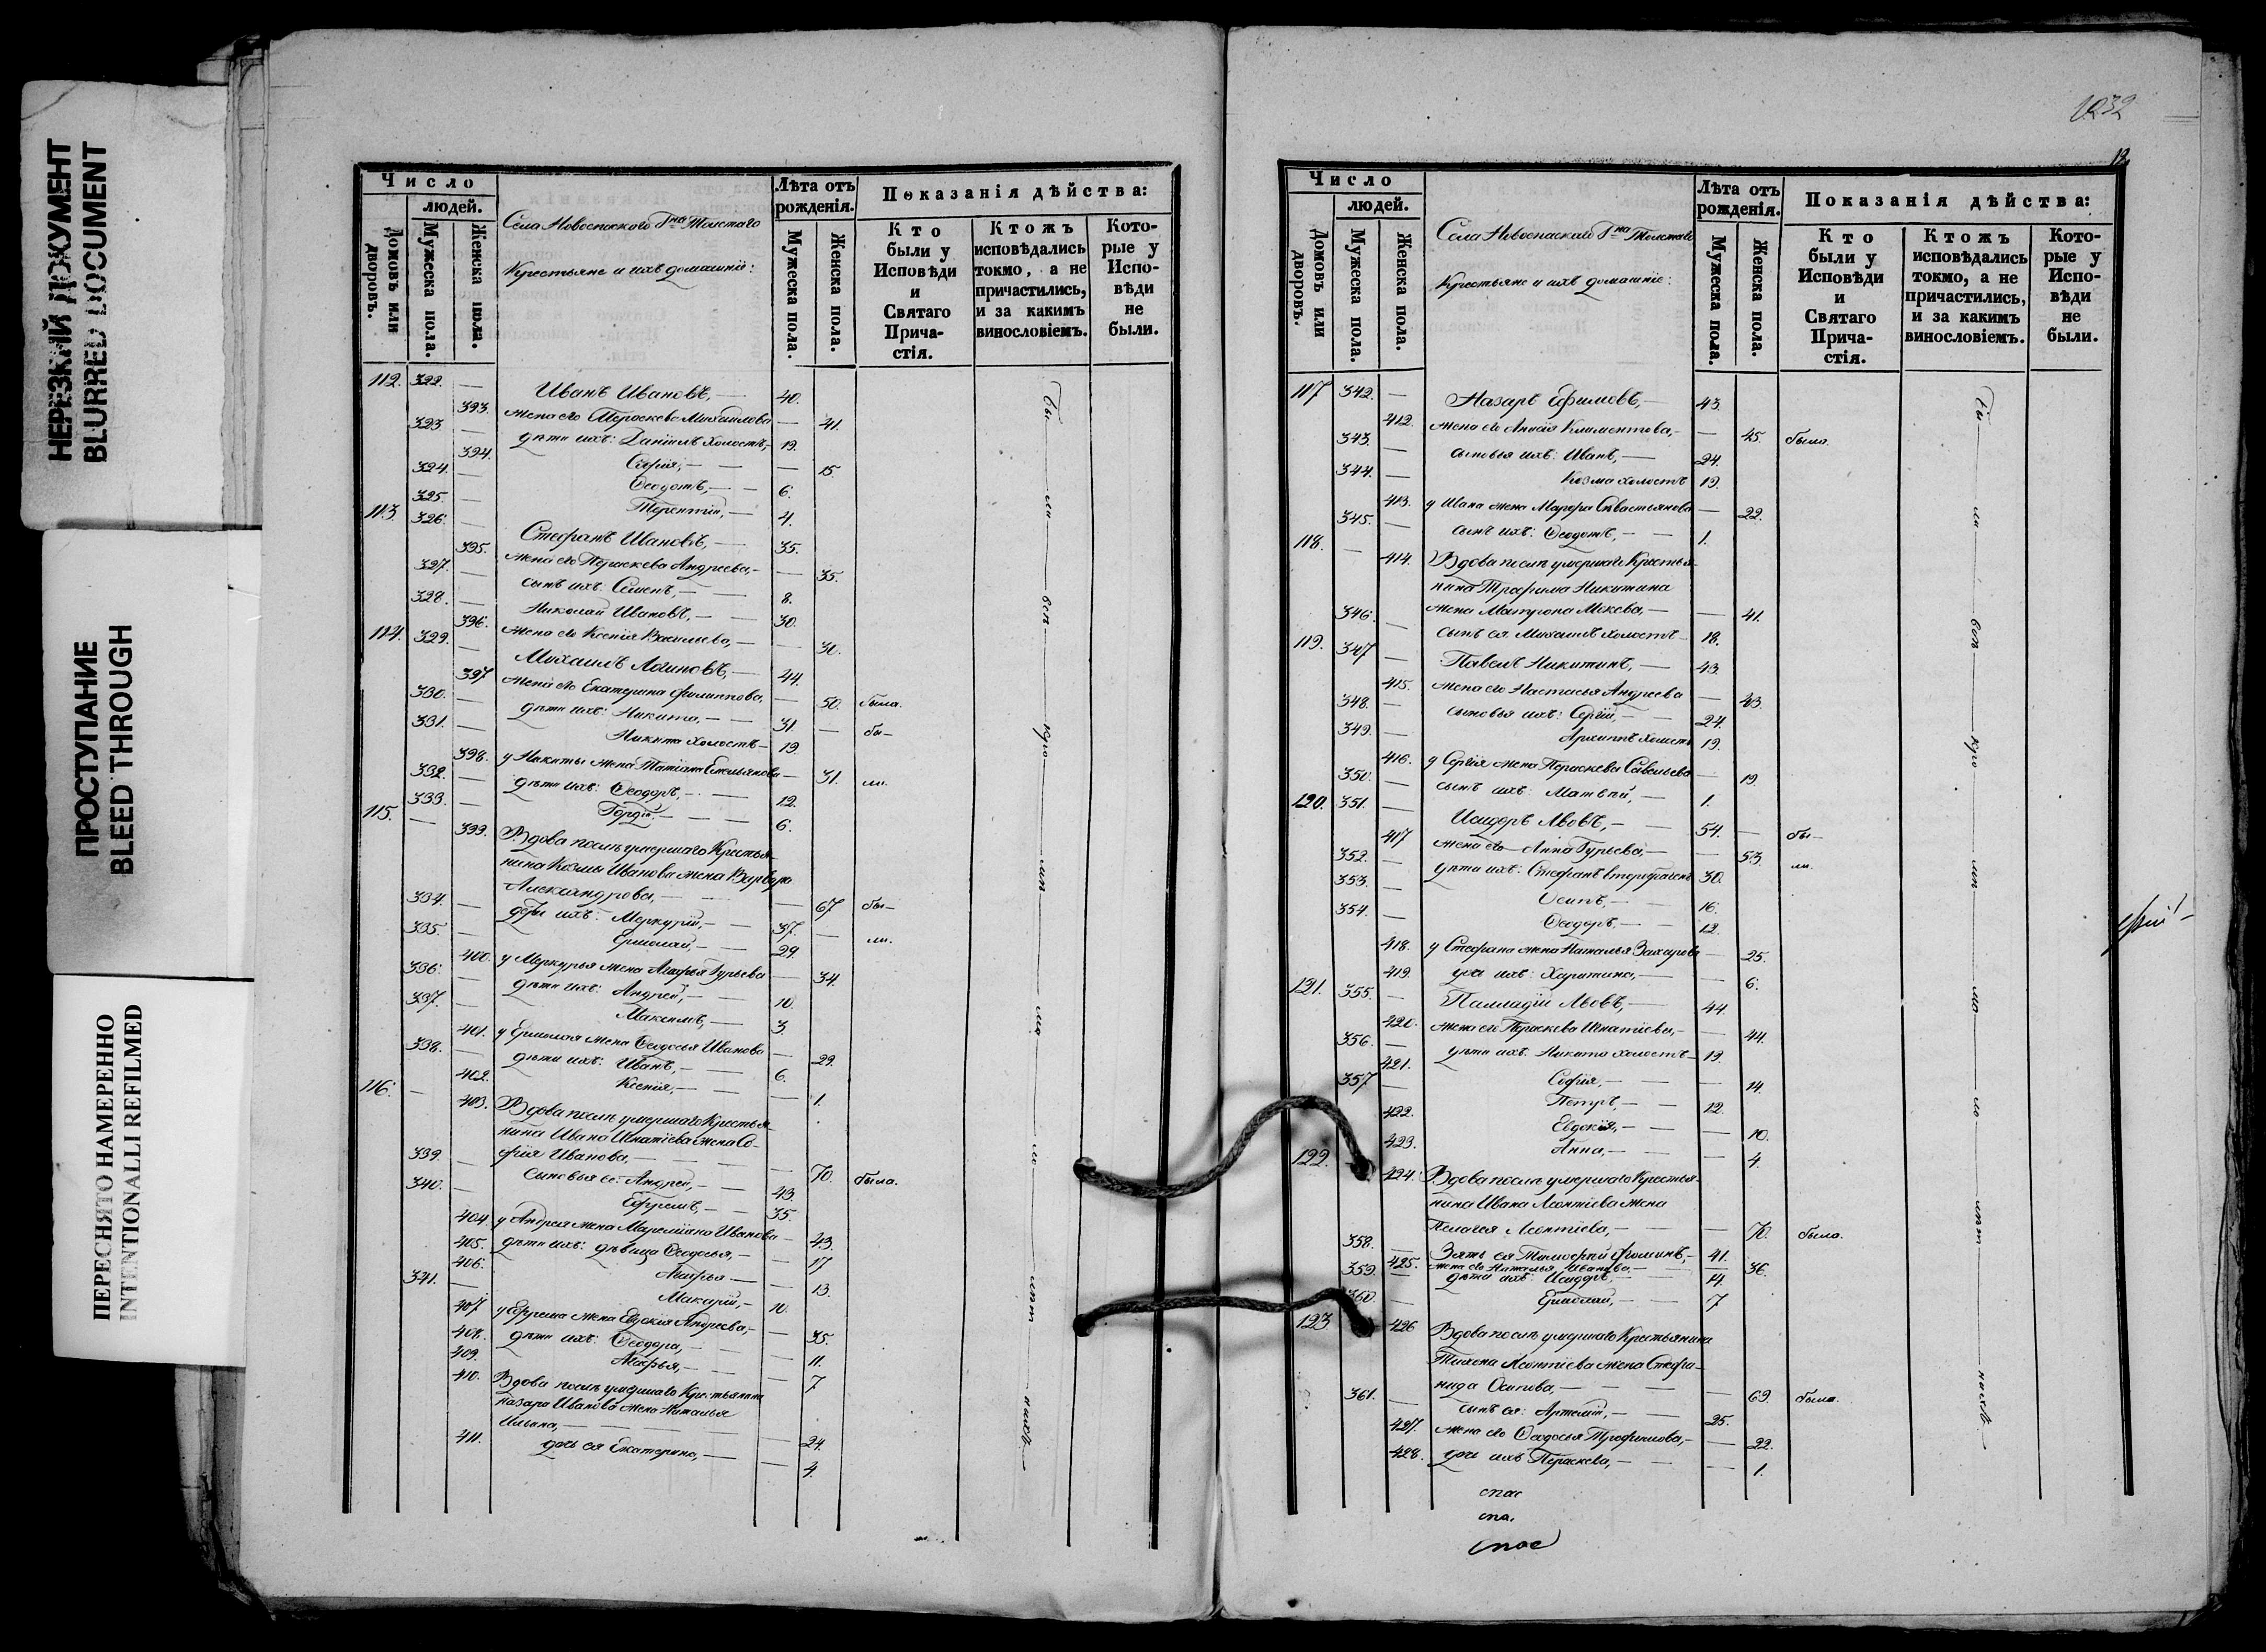 НЕРЕЗКИЙ ДОКУМЕНТ
BLURRED DOCUMENT
ПРОСТУПАНИЕ
BLEED THROUGH
ПЕРЕСНЯТО НАМЕРЕННО
INTENTIONALLI REFILMED
Число
людей.
Домовъ или дворовъ.
Мужеска пола.
Женска пола.
Села Новоспаского Гна Толстаго
Крестьяне и ихъ домашніе:
Лѣта отъ рожденія.
Мужеска пола.
Женска пола.
Показанія дѣйства:
Кто были у Исповѣди и Святаго Причастія.
Ктожъ исповѣдались токмо, а не причастились, и за какимъ винословіемъ.
Которые у Исповѣди не были.
112. 322. — Иванъ Ивановъ, — 40.
393. жена его Пераскева Михаилова — 41.
323. — дѣти ихъ: Даніилъ холостъ, — 19.
394. Софія, — — 15.
324. — Ѳеодотъ, — 6.
325. — Терентій, — 4.
113. 326. — Стефанъ Ивановъ, — 35.
395. жена его Пераскева Андреева, — 35.
327. — сынъ ихъ: Семенъ, — 8.
328. — Николай Ивановъ, — 30.
396. жена его Ксенія Васильева, — 30.
114. 329. — Михаилъ Логиновъ, — 44.
397 жена его Екатерина Филиппова, — 50. была.
330. — дѣти ихъ: Никита, — 31. — бы—
331. — Никита холостъ — 19.
398. у Никиты жена Татіана Емельянова — 31. ли.
332. — дѣти ихъ: Ѳеодоръ, — 12.
333. — Гордій. — 6.
115. — 399. Вдова послѣ умершаго Крестья-
нина Козмы Иванова жена Варвара
Александрова, — — 67 бы—
334. — дѣти ихъ: Меркурій, — 37. — ли.
335. — Ермолай, — 29.
400. у Меркурья жена Агафья Гурьева — 34.
336. — дѣти ихъ: Андрей, — 10.
337. — Максимъ, — 3.
401. у Ермолая жена Ѳеодосья Иванова — 29.
338. — дѣти ихъ: Иванъ, — 6.
402. Ксенія, — — 1.
116. — 403. Вдова послѣ умершаго Крестья-
нина Ивана Игнатіева жена Со-
фія Иванова, — — 70. была.
339. — сыновья ее: Андрей, — 43.
340. — Ефремъ, — 35.
404. у Андрея жена Иванова — 43.
405. дѣти ихъ: дѣвица Ѳеодосья, — 17
406. Агафья — — 13.
341. — Макарій, — 10.
407 у Ефрема жена Евдокія Андреева, — 35.
408. дѣти ихъ: Ѳеодора, — 11.
409. Агафья, — — 7
410. Вдова послѣ умершаго Крестьянина
Назара Иванова жена Наталья
Ильина, — — 24.
411. дочь ея Екатерина, — 4.
бы — ли — всѣ — кро — мѣ — ма — ло — лѣт — нихъ. —
1032
12.
Число
людей.
Домовъ или дворовъ.
Мужеска пола.
Женска пола.
Села Новоспаскаго Гна Толстаго
Крестьяне и ихъ домашніе:
Лѣта отъ рожденія.
Мужеска пола.
Женска пола.
Показанія дѣйства:
Кто были у Исповѣди и Святаго Причастія.
Ктожъ исповѣдались токмо, а не причастились, и за какимъ винословіемъ.
Которые у Исповѣди не были.
117 342. — Назаръ Ефимовъ, — 43.
412. жена его Анисія Климентова, — 45. была.
343. — сыновья ихъ: Иванъ, — 24.
344. — Козма холостъ 19.
413. у Ивана жена Марфа Севастьянова — 22.
345. — сынъ ихъ: Ѳеодотъ, — 1.
118. — 414. Вдова послѣ умершаго Крестья-
нина Трофима Никитина
жена Матрона — 41.
346. — сынъ ея: Михаилъ холостъ — 18.
119. 347 — Павелъ Никитинъ, — 43.
415. жена его Настасья Андреева — 43.
348. — сыновья ихъ: Сергій, — 24.
349. — Архипъ холостъ 19.
416. у Сергія жена Пераскева Савельева — 19.
350. — сынъ ихъ: Матвѣй, — 1.
120. 351. — Исидоръ Львовъ, — 54. — бы—
417 жена его Анна Гурьева, — 53. ли.
352. — дѣти ихъ: Стефанъ 30.
353. — Осипъ, — 16.
354. — Ѳеодоръ, — 12.
418. у Стефана жена Наталья Захарова — 25.
419. дочь ихъ: Харитина, — 6.
121. 355. — Палладій Львовъ, — 44.
420. жена его Пераскева Игнатіева, — 44.
356. — дѣти ихъ: Никита холостъ — 19.
421. Софія, — — 14.
357 — Петръ, — 12.
422. Евдокія, — — 10.
423. Анна, — — 4.
122. 424. Вдова послѣ умершаго Крестья-
нина Ивана Леонтіева жена
Пелагея Леонтіева, — — 70. была.
358. — Зять ея Тимофей Фоминъ, — 41.
425. жена его Наталья Иванова, — 36.
359. — дѣти ихъ: Исидоръ, — 14.
360. — Ермолай, — 7
123 426 Вдова послѣ умершаго Крестьянина
Тихона Леонтіева жена Стефа-
нида Осипова, — — 69. была.
361. — сынъ ея: Артемій, — 25.
427. жена его Ѳеодосья Трофимова, — 22.
428. дочь ихъ Пераскева, — 1.
бы — ли — всѣ — кро — мѣ — ма — ло — лѣт — нихъ. —
спас
спа.
спас